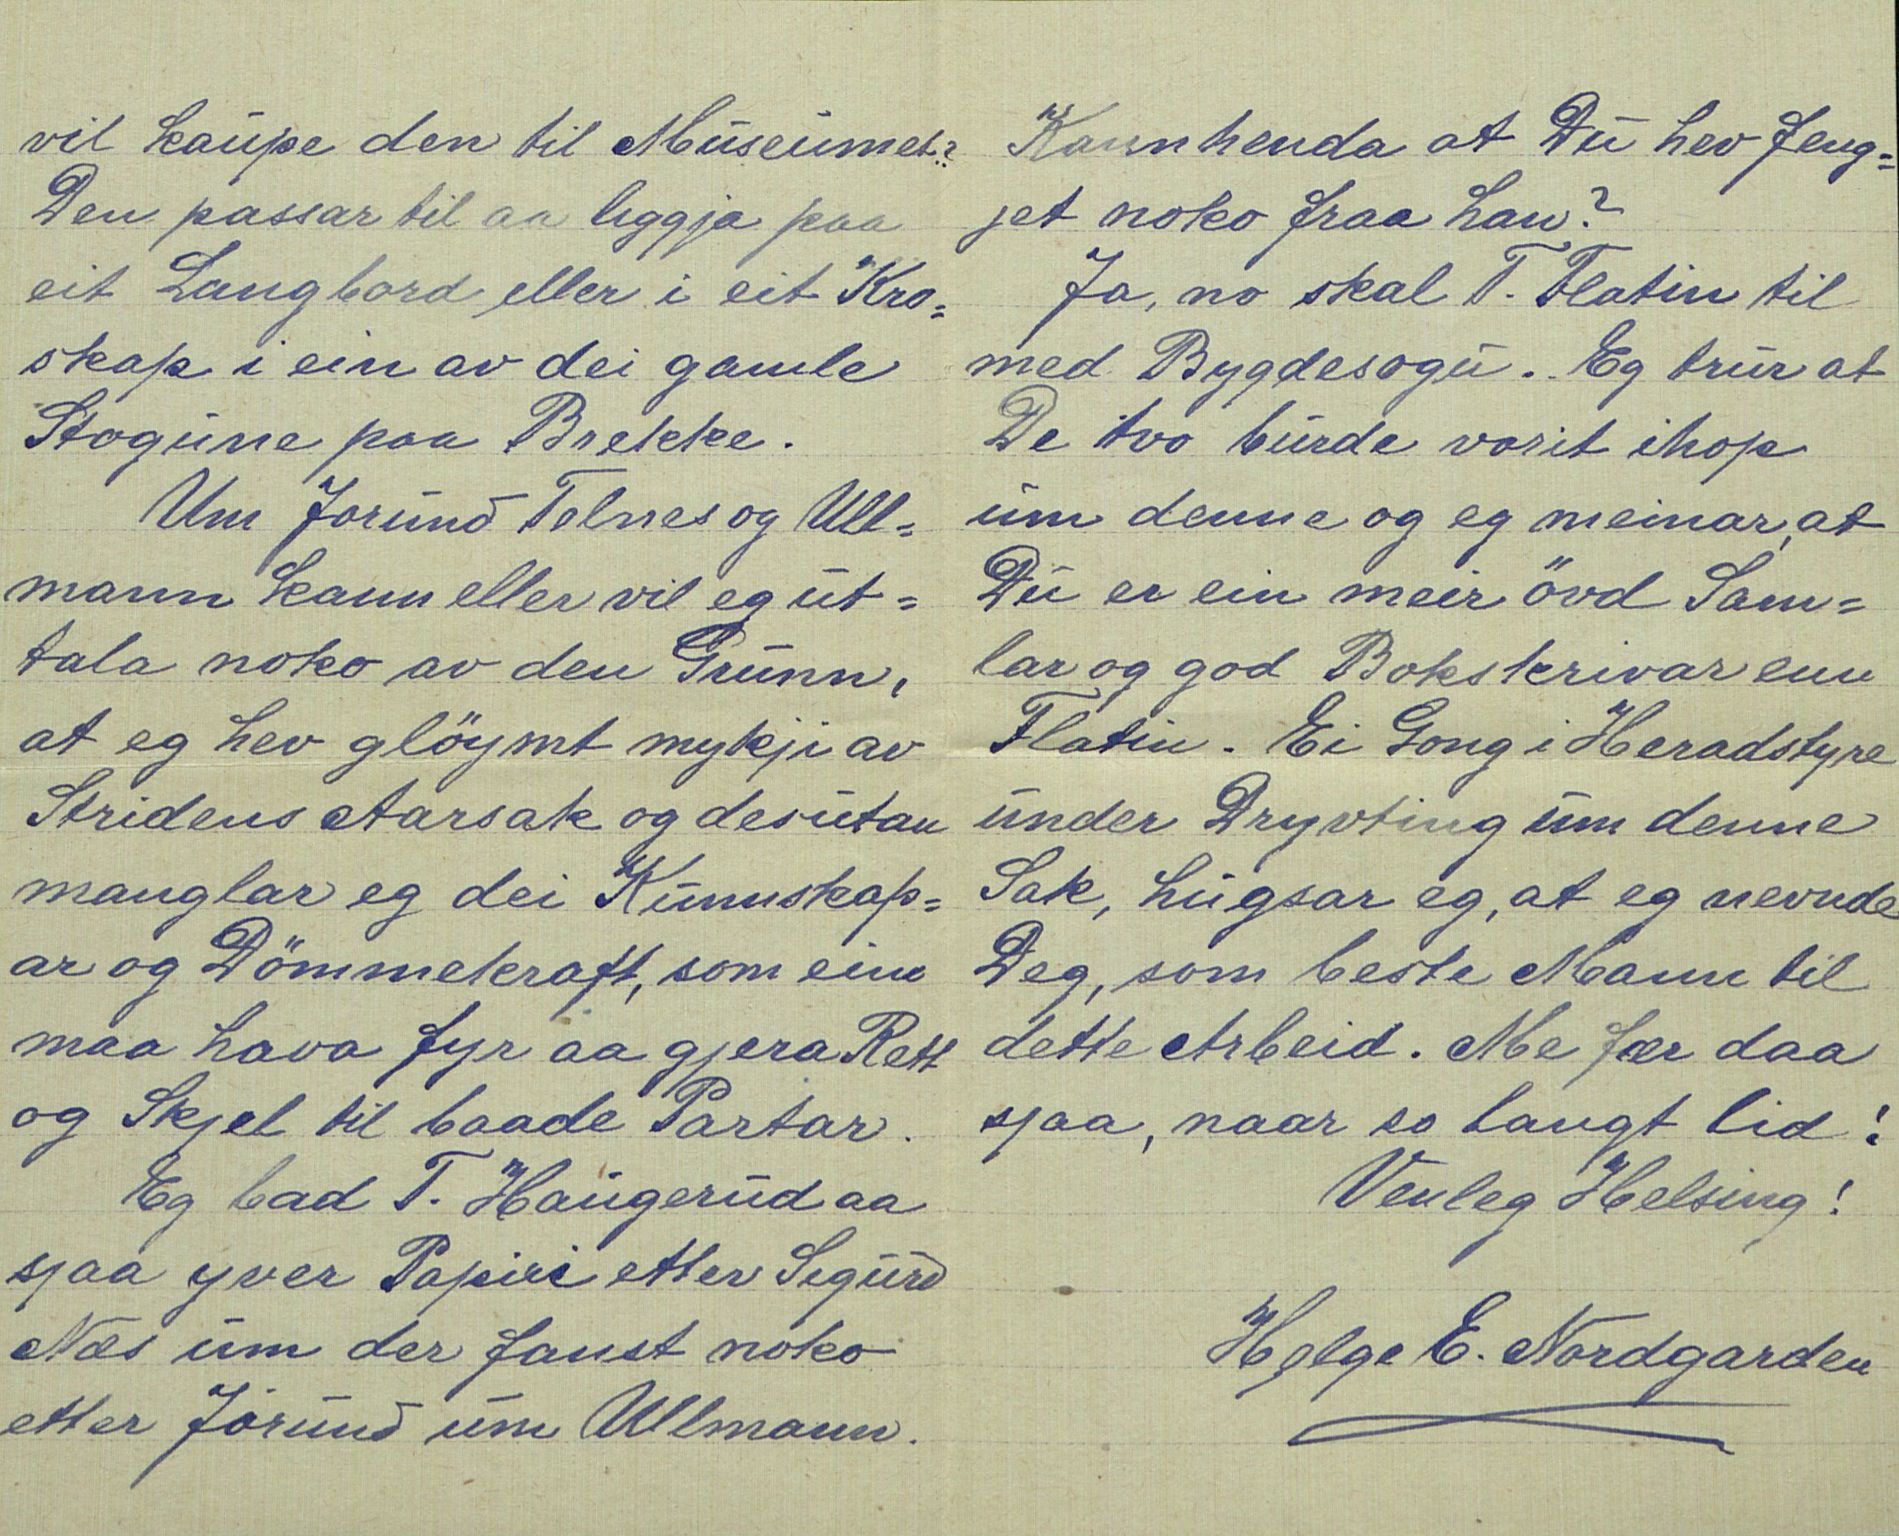 vil kaupe den til Museumet?
Den passar til aa liggja paa
eit Langbord eller i eit Kro=
skap i ein av dei gamle
Stogune paa Brekke.
Um Jorund Telnes og Ull=
mann kann eller vil eg ut=
tala noko av den Grunn,
at eg hev glöymt mykji av
Stridens Aarsak og desutan
manglar eg dei Kunnskap=
ar og Dömmekraft, som ein
maa hava fyr aa gjera Rett
og Skjel til baade Partar.
Eg bad T. Haugerud aa
sjaa yver Papiri etter Sigurd
Næs um der fanst noko
etter Jorund um Ullmann.
Kannhenda at Du hev feng=
jet noko fraa han?
Ja, no skal T. Flatin til
med Bygdesogu. Eg trur at
De tvo burde vorit ihop
um denne og eg meinar, at
Du er ein meir övd Sam=
lar og god Bokskrivar enn
Flatin. Ei Gong i Heradstyre
under Dryvting um denne
Sak, hugsar eg, at eg nevnde
Deg, som beste Mann til
dette Arbeid. Me fær daa
sjaa, naar so langt lid!
Venleg Helsing!
Helge E. Nordgarden